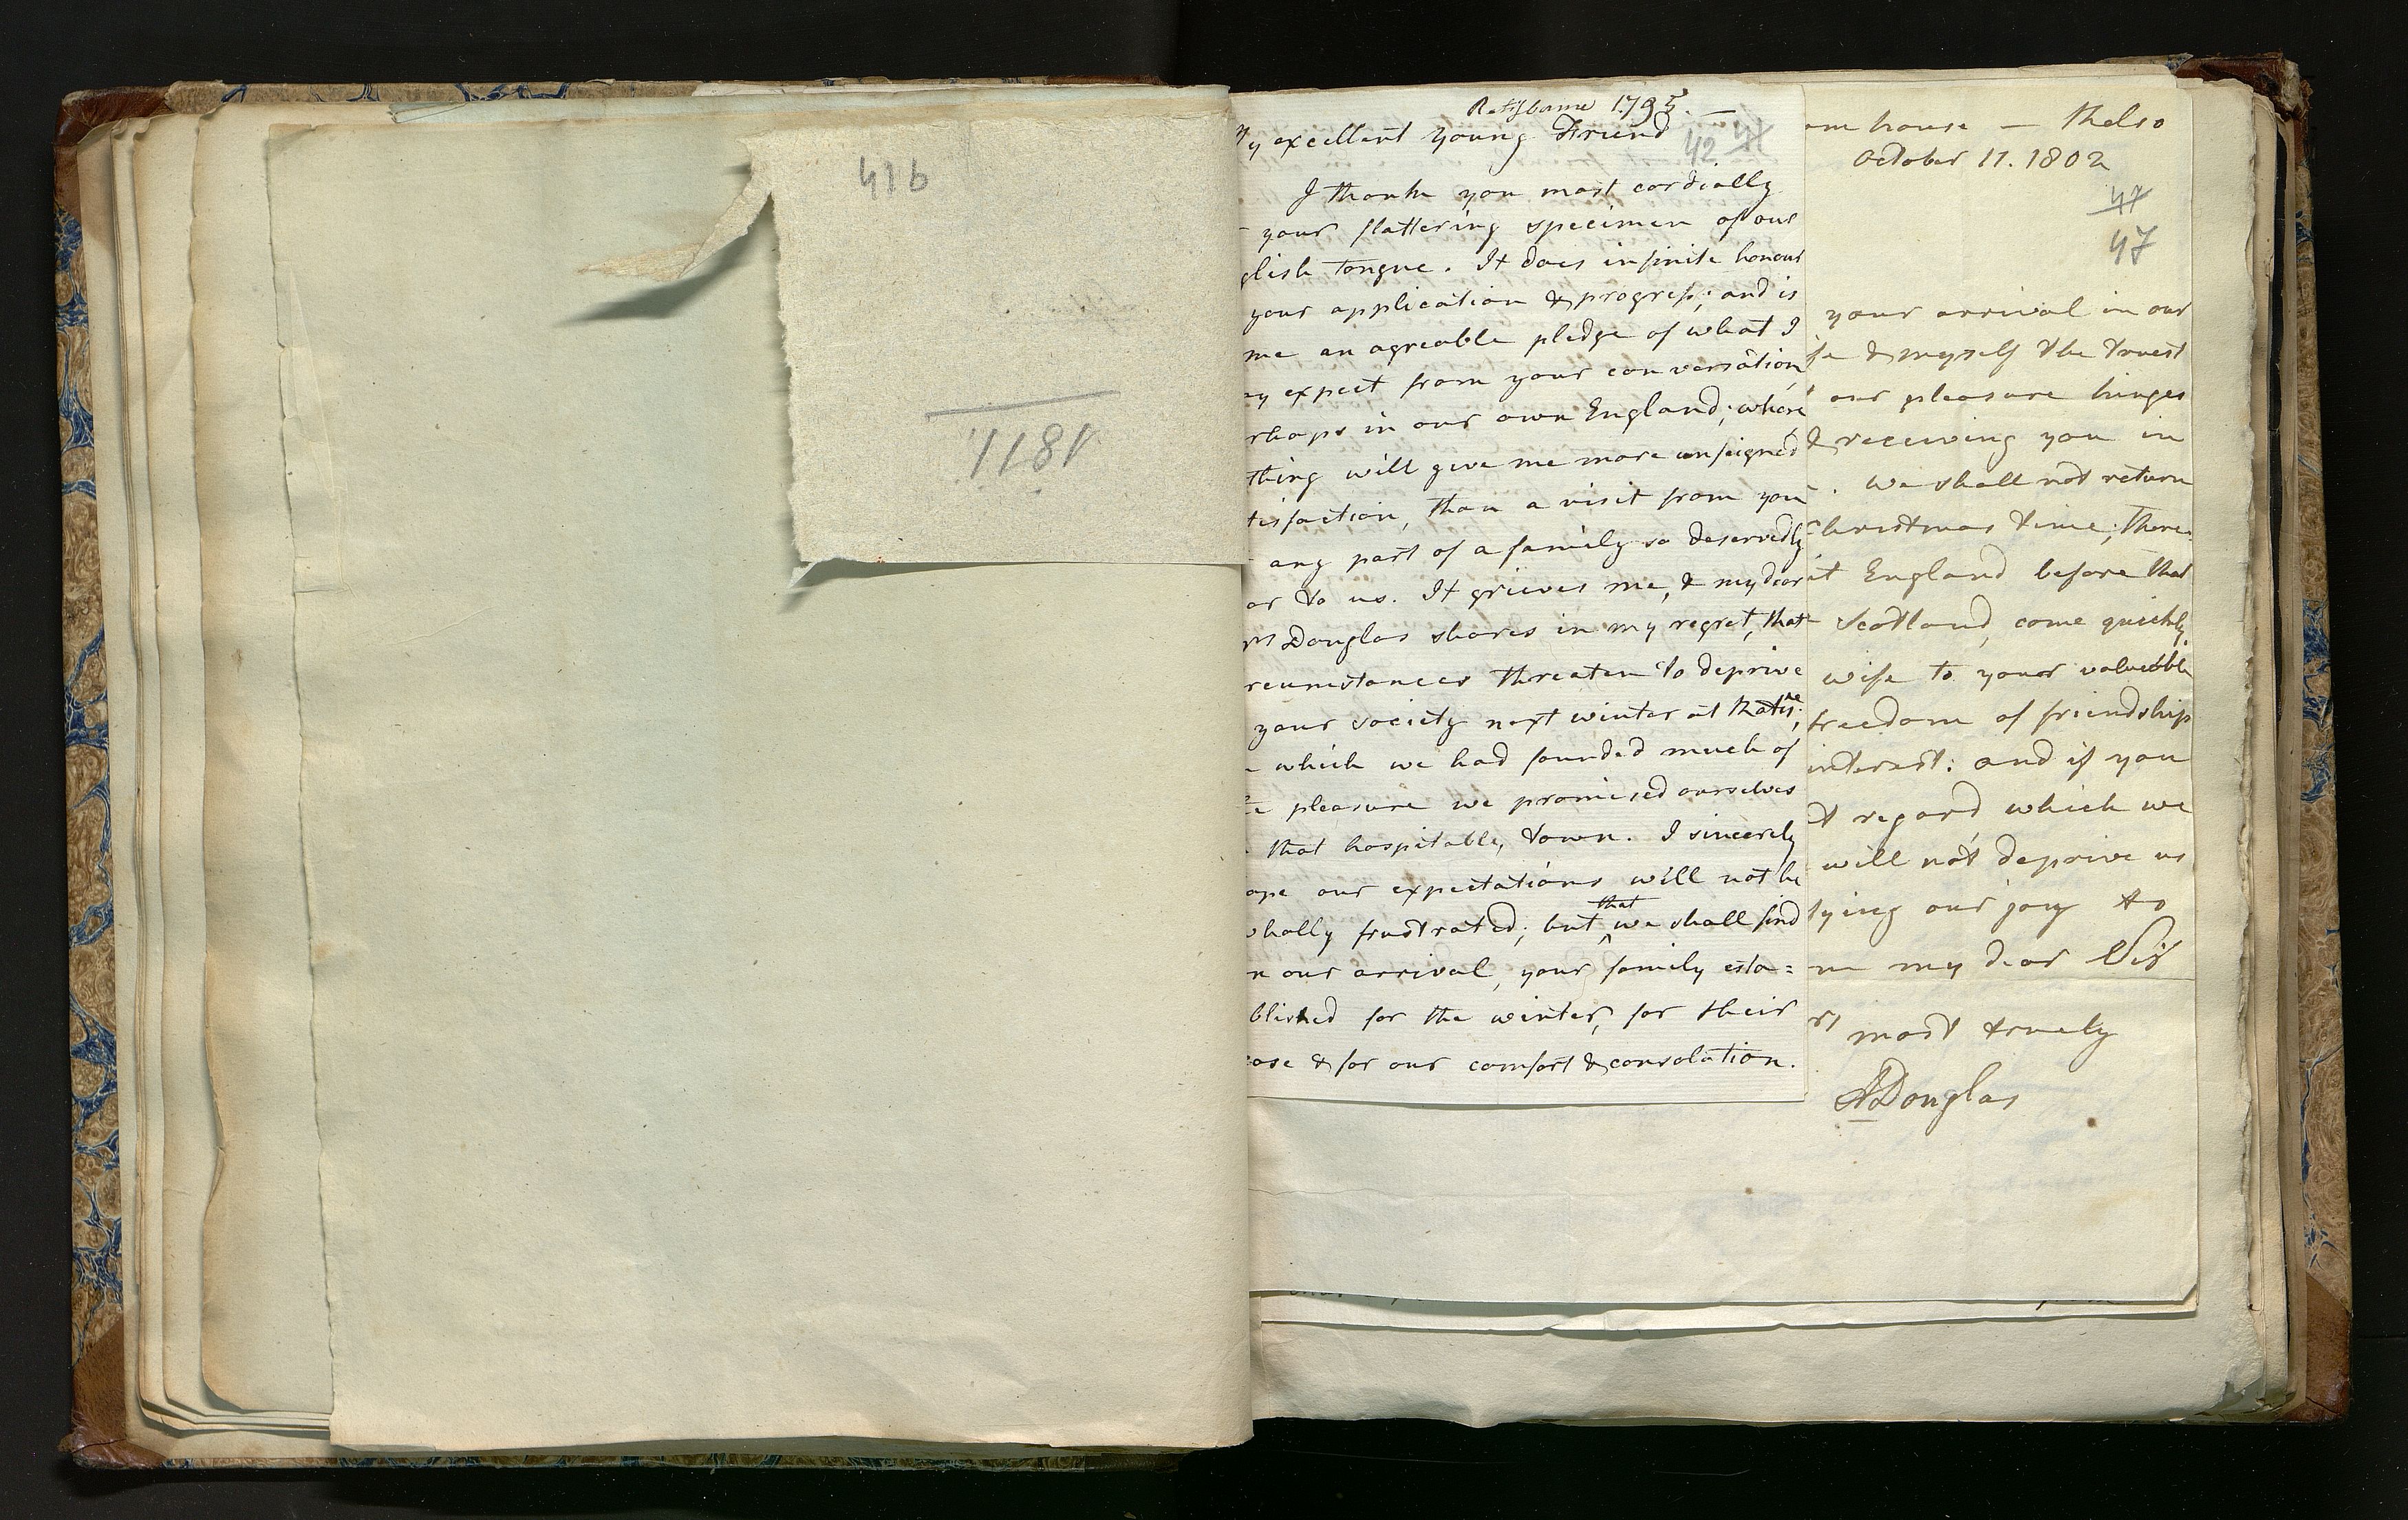 41b
1811.
Ratisbonne 1795. —
42 41
My excellent young Friend
I thank you most cordially
your flattering specimen of our
glish tongue. It does infinite honour
your application & progress; and is
me an agreable pledge of what I
ay expect from your conversation,
rhaps in our own England; where
thing will give me more unfeigned
tisfaction, than a visit from you
any part of a family so deservedly
ar to us. It grieves me, & my dear
rs Douglas shares in my regret, that
rcumstances threaten to deprive
your society next winter at
which we had founded much of
e pleasure we promised ourselves
that hospitable, town. I sincerely
ope our expectations will not be
wholly frustrated; but that we shall find
n our arrival, your family esta=
blished for the winter, for their
ease & for our comfort & consolation.
om house — Thelso
October 11. 1802
47
47
your arrival in our
ife & myself the truest
our pleasure hinges
& receiving you in
. We shall not return
Christmas time; there
it England before that
Scotland, come quickly,
wife to your valuable
freedom of friendship
interest: and if you
t regard which we
will not deprive us
fying our joy to
me my dear Sir
rs most truely
ADouglas